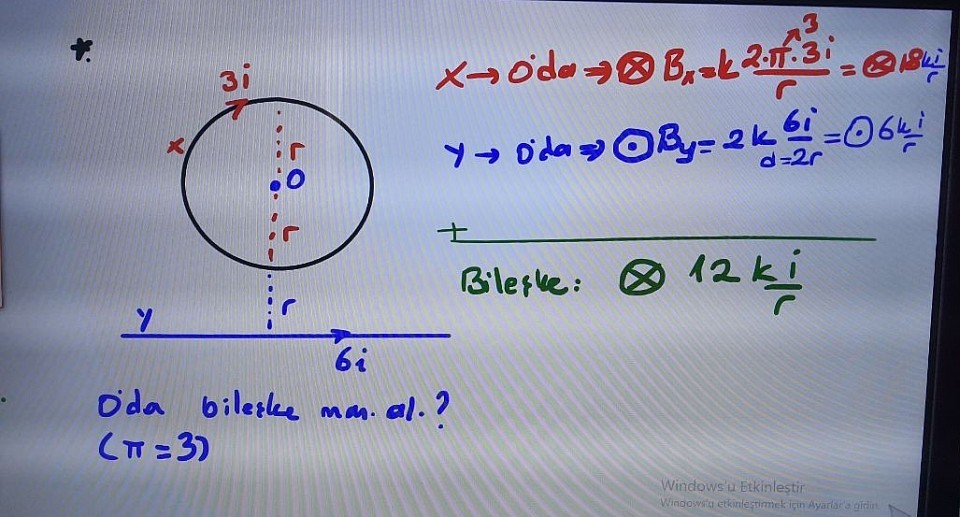 *.
3i
x
r
O
r
r
y
6i
O'da bileşke man. al.?
(π = 3)
X → O'da ⇒ ⊗ Bx = k 2.π.3i / r = ⊗ 18 ki/r
3
y → O'da ⇒ ⊙ By = 2k 6i / d=2r = ⊙ 6k i/r
+
Bileşke: ⊗ 12 k i/r
Windows'u Etkinleştir
Windows'u etkinleştirmek için Ayarlar'a gidin